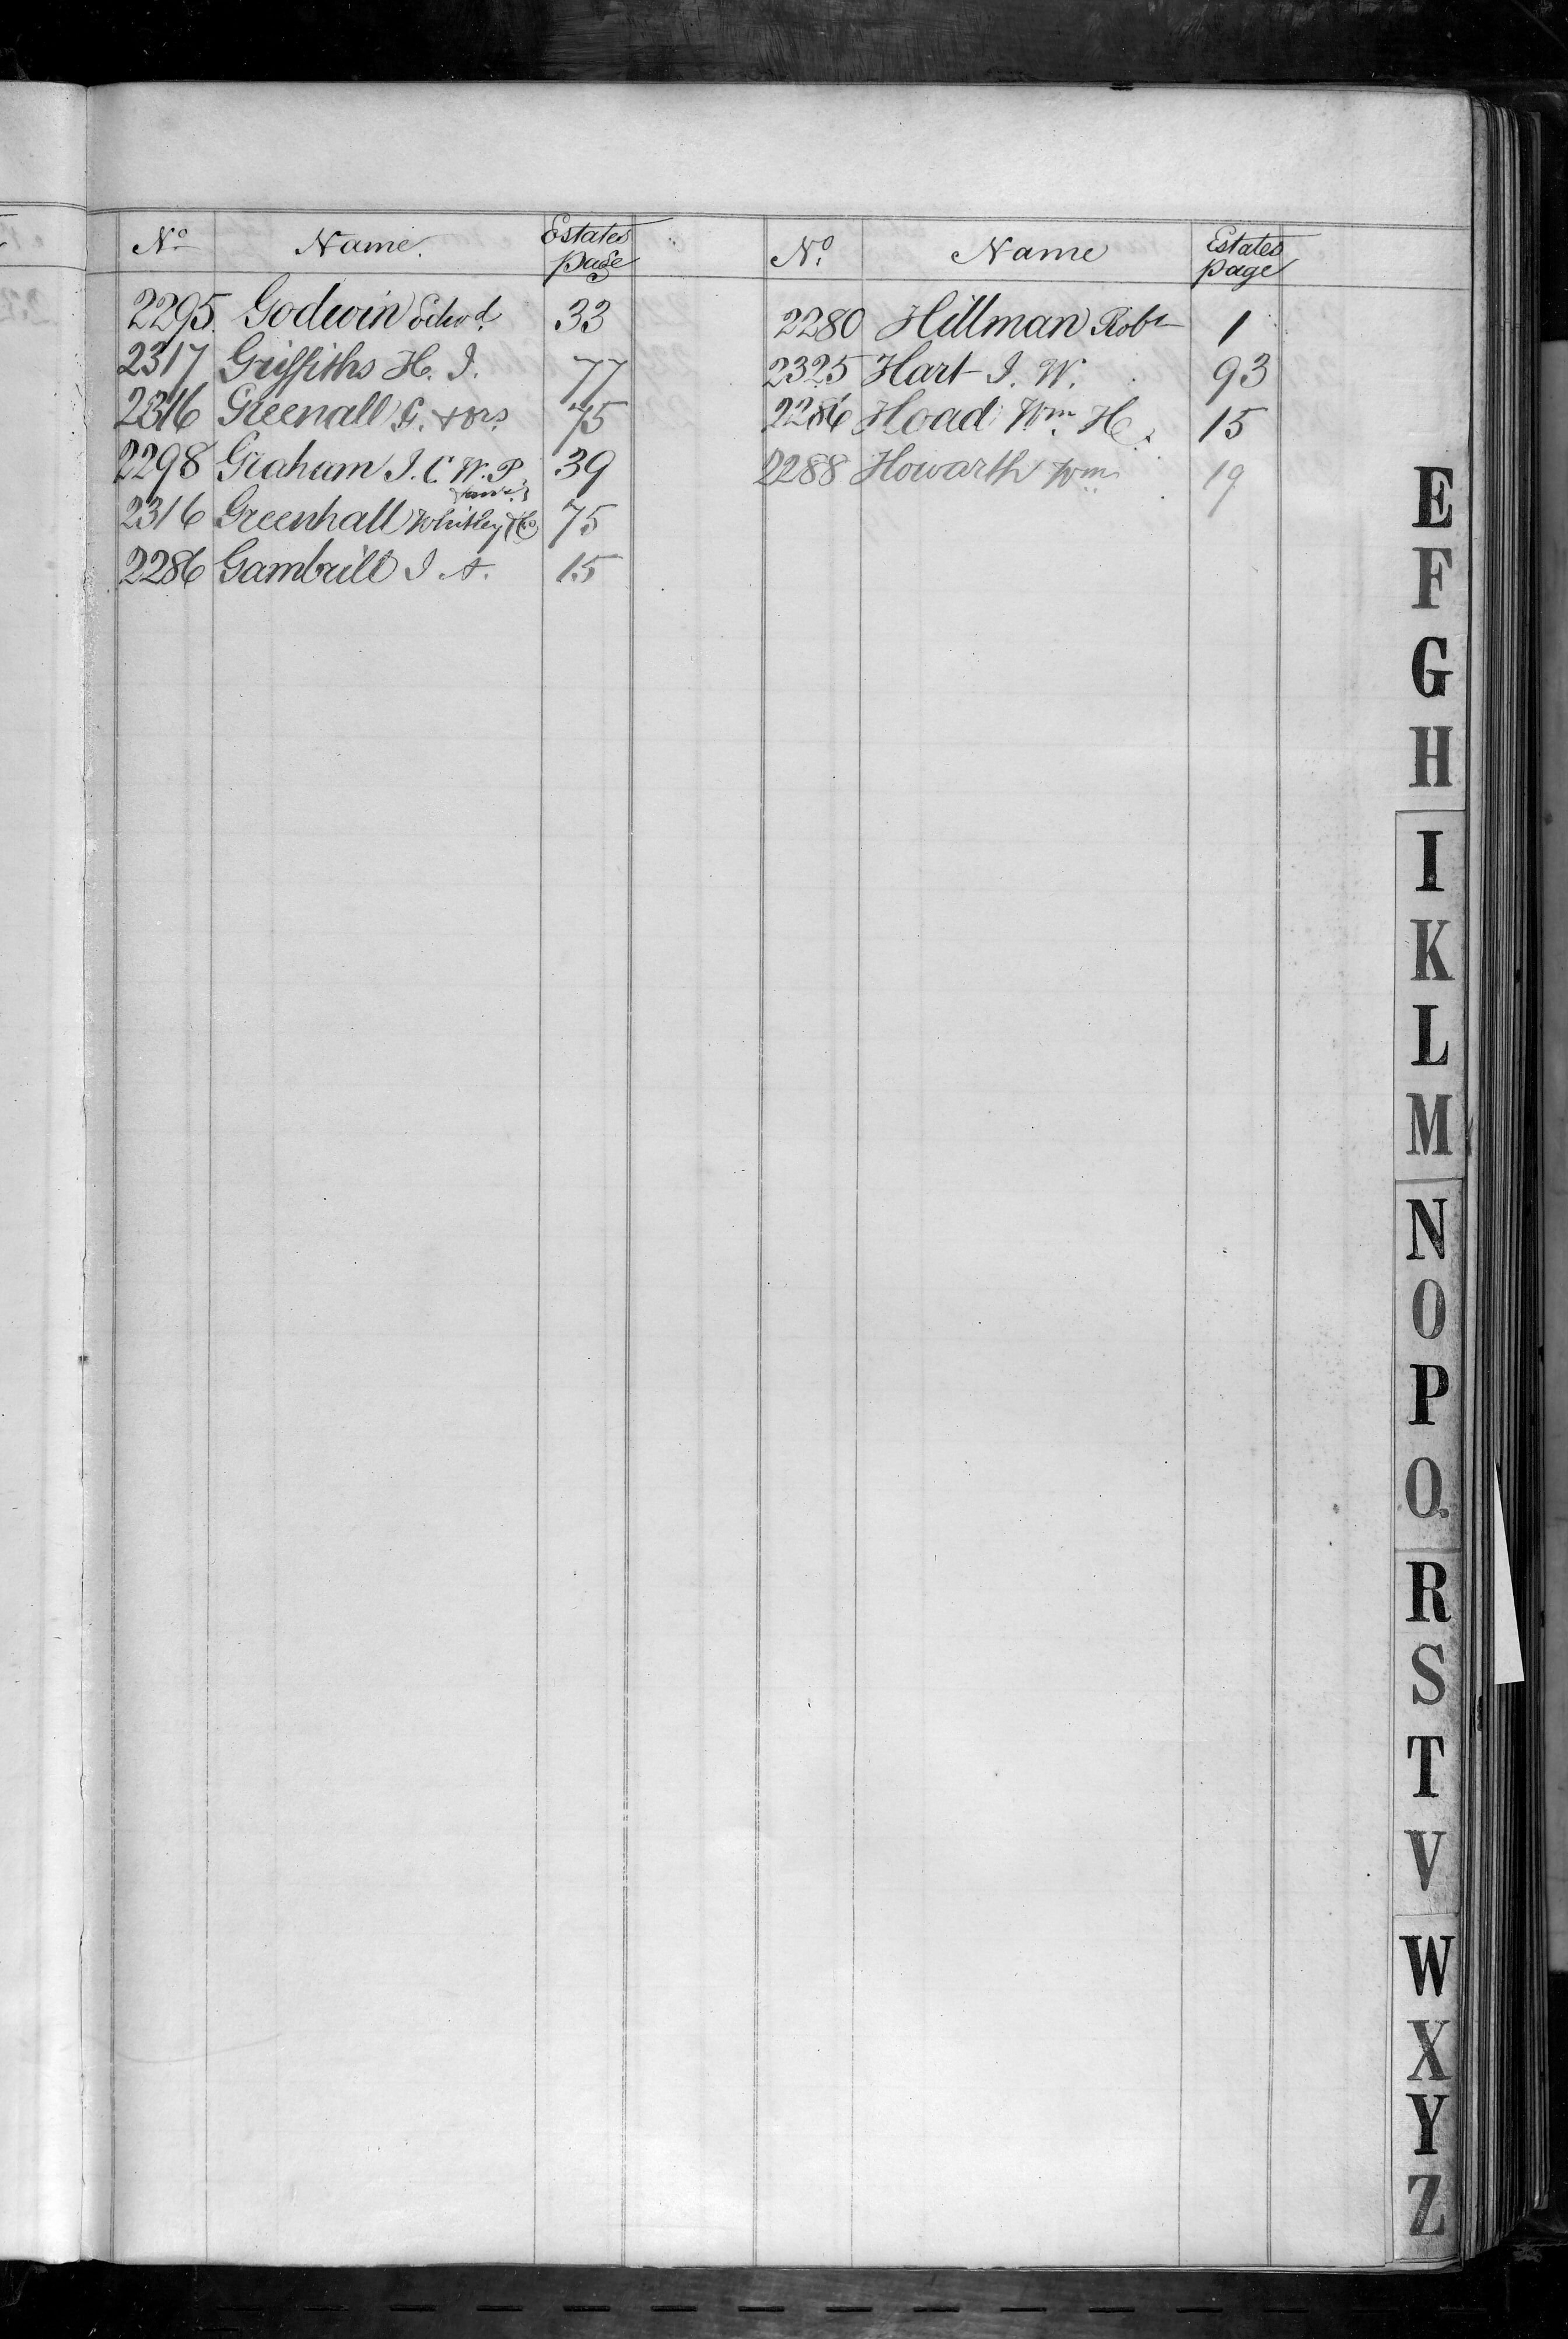 No Name. Estates page
2295 Godwin Edwd. 33
2317 Griffiths H. J. 77
2316 Greenall G. & ors. 75
2298 Graham J. C. W. P. 39
2316 Greenhall Whitley & Co 75
2286 Gambrill J A. 15
No. Name Estates page
2280 Hillman Robt 1
2325 Hart J. W. 93
2286 Hoad Wm. H. 15
2288 Howarth Wm 19
E
F
G
H
I
K
L
M
N
O
P
Q.
R
S
T
V
W
X
Y
Z